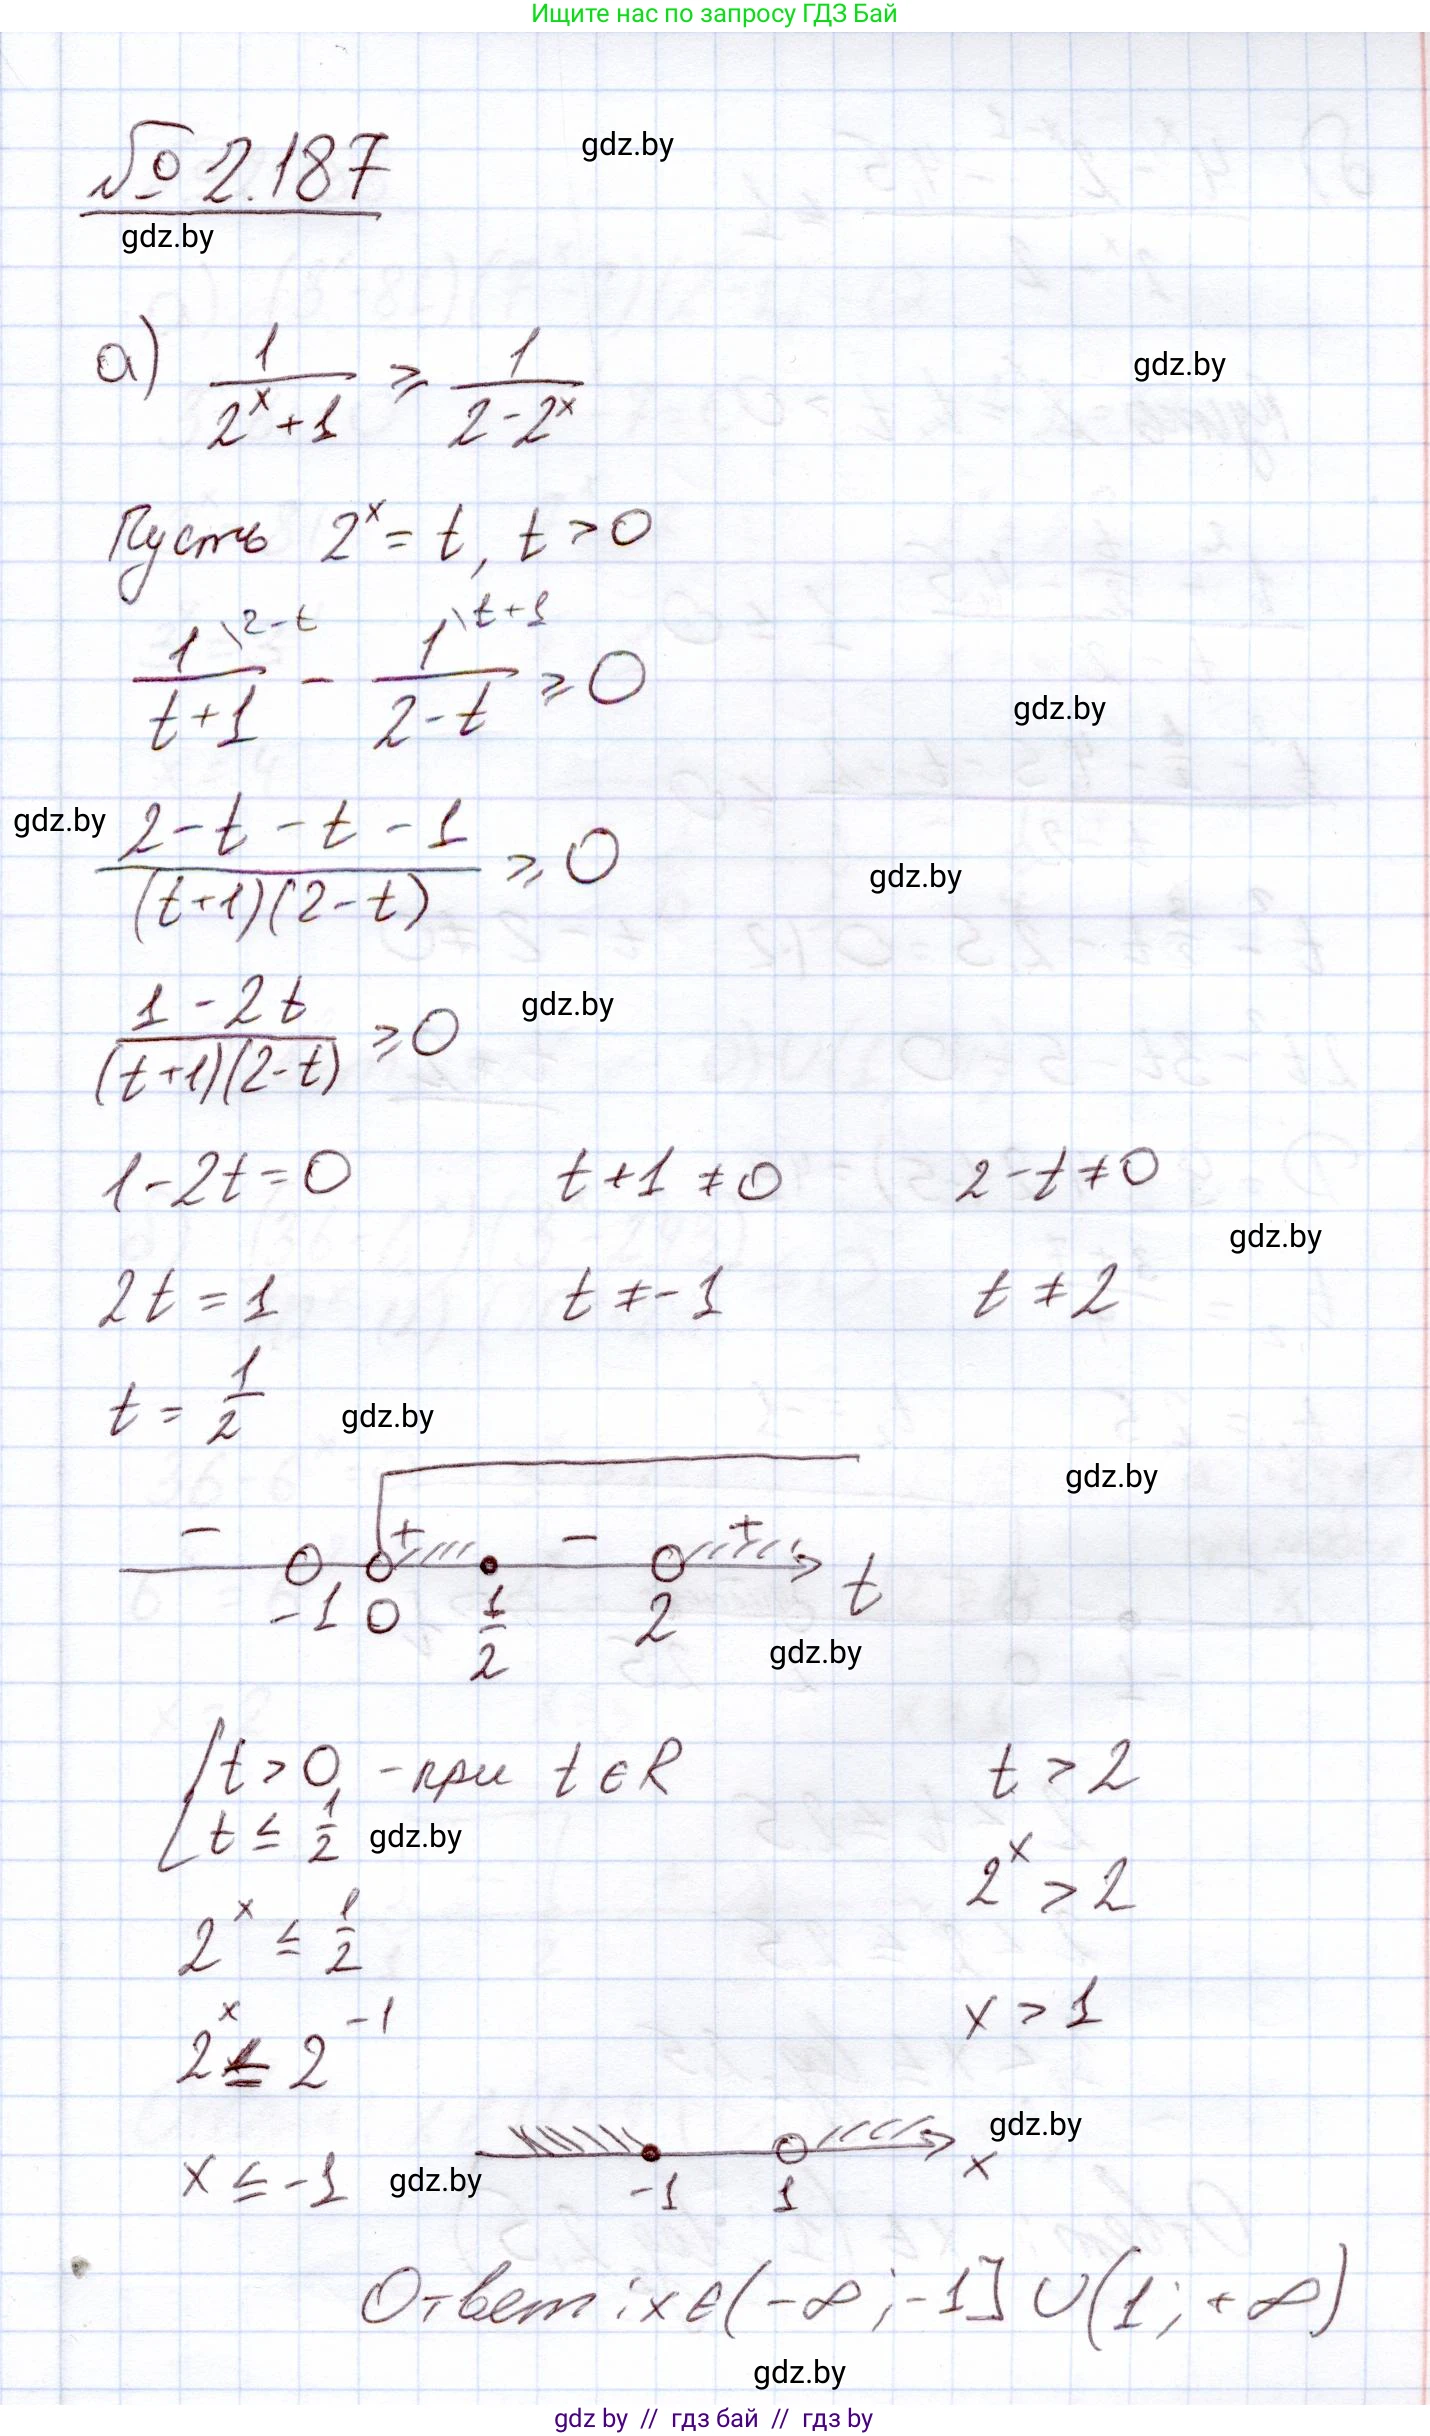 Ищите нас по запросу ГДЗ Бай
№ 2.187
gdz.by
gdz.by
а) 1/(2^x + 1) ≥ 1/(2 - 2^x)
gdz.by
Пусть 2^x = t, t > 0
1\^(2-t)/(t+1) - 1\^(t+1)/(2-t) ≥ 0
gdz.by
gdz.by
(2 - t - t - 1)/((t+1)(2-t)) ≥ 0
gdz.by
(1 - 2t)/((t+1)(2-t)) ≥ 0
gdz.by
1 - 2t = 0 t + 1 ≠ 0 2 - t ≠ 0
gdz.by
2t = 1 t ≠ -1 t ≠ 2
t = 1/2
gdz.by
gdz.by
- + - +
-1 0 1/2 2 t
gdz.by
[ t > 0, - при t ∈ R t > 2
t ≤ 1/2
gdz.by
2^x > 2
2^x ≤ 1/2
x > 1
2^x ≤ 2^-1
gdz.by
x ≤ -1
gdz.by
-1 1 x
Ответ: x ∈ (-∞; -1] ∪ (1; +∞)
gdz.by
gdz by // гдз бай // гдз by